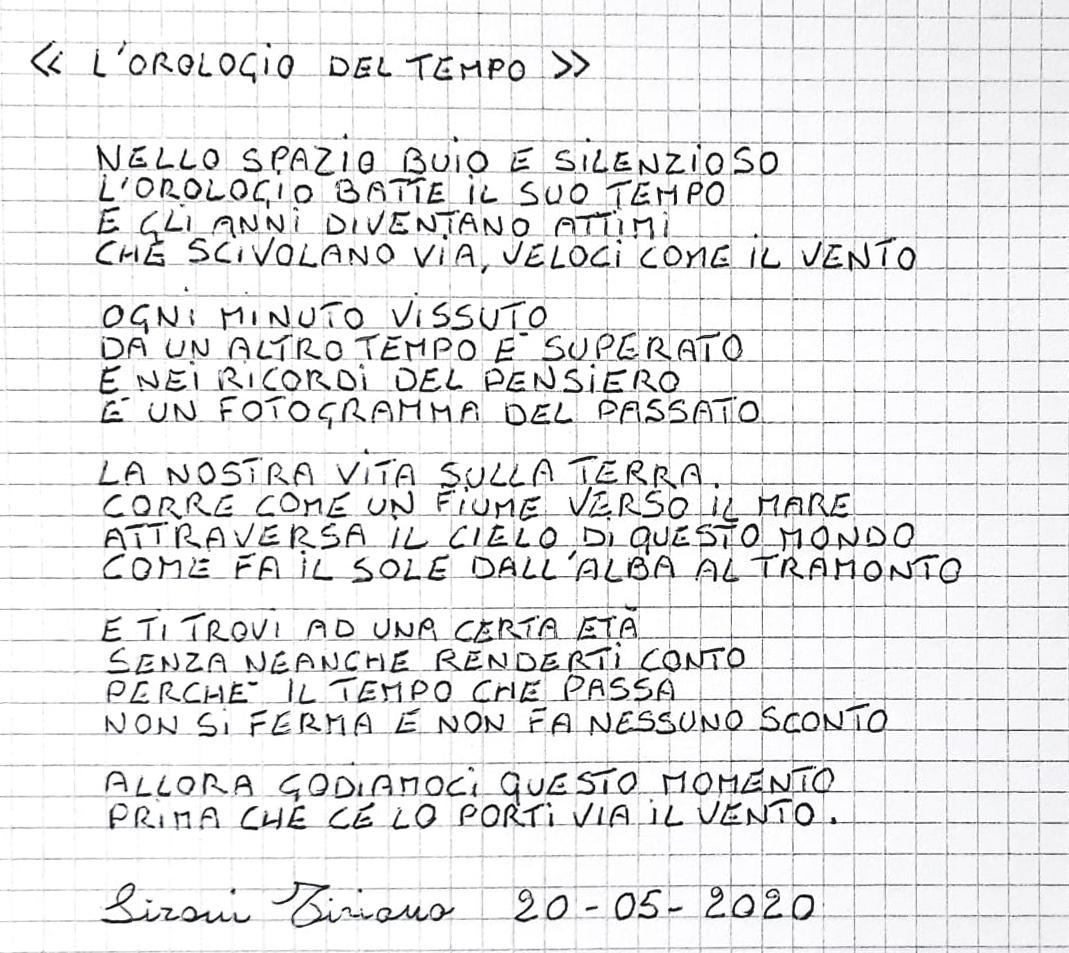 « L'OROLOGIO DEL TEMPO »
NELLO SPAZIO BUIO E SILENZIOSO
L'OROLOGIO BATTE IL SUO TEMPO
E GLI ANNI DIVENTANO ATTIMI
CHE SCIVOLANO VIA, VELOCI COME IL VENTO
OGNI MINUTO VISSUTO
DA UN ALTRO TEMPO E' SUPERATO
E NEI RICORDI DEL PENSIERO
E' UN FOTOGRAMMA DEL PASSATO
LA NOSTRA VITA SULLA TERRA.
CORRE COME UN FIUME VERSO IL MARE
ATTRAVERSA IL CIELO DI QUESTO MONDO
COME FA IL SOLE DALL'ALBA AL TRAMONTO
E TI TROVI AD UNA CERTA ETÀ
SENZA NEANCHE RENDERTI CONTO
PERCHE' IL TEMPO CHE PASSA
NON SI FERMA E NON FA NESSUNO SCONTO
ALLORA GODIAMOCI QUESTO MOMENTO
PRIMA CHE CE LO PORTI VIA IL VENTO.
Sironi Tiziano 20-05-2020